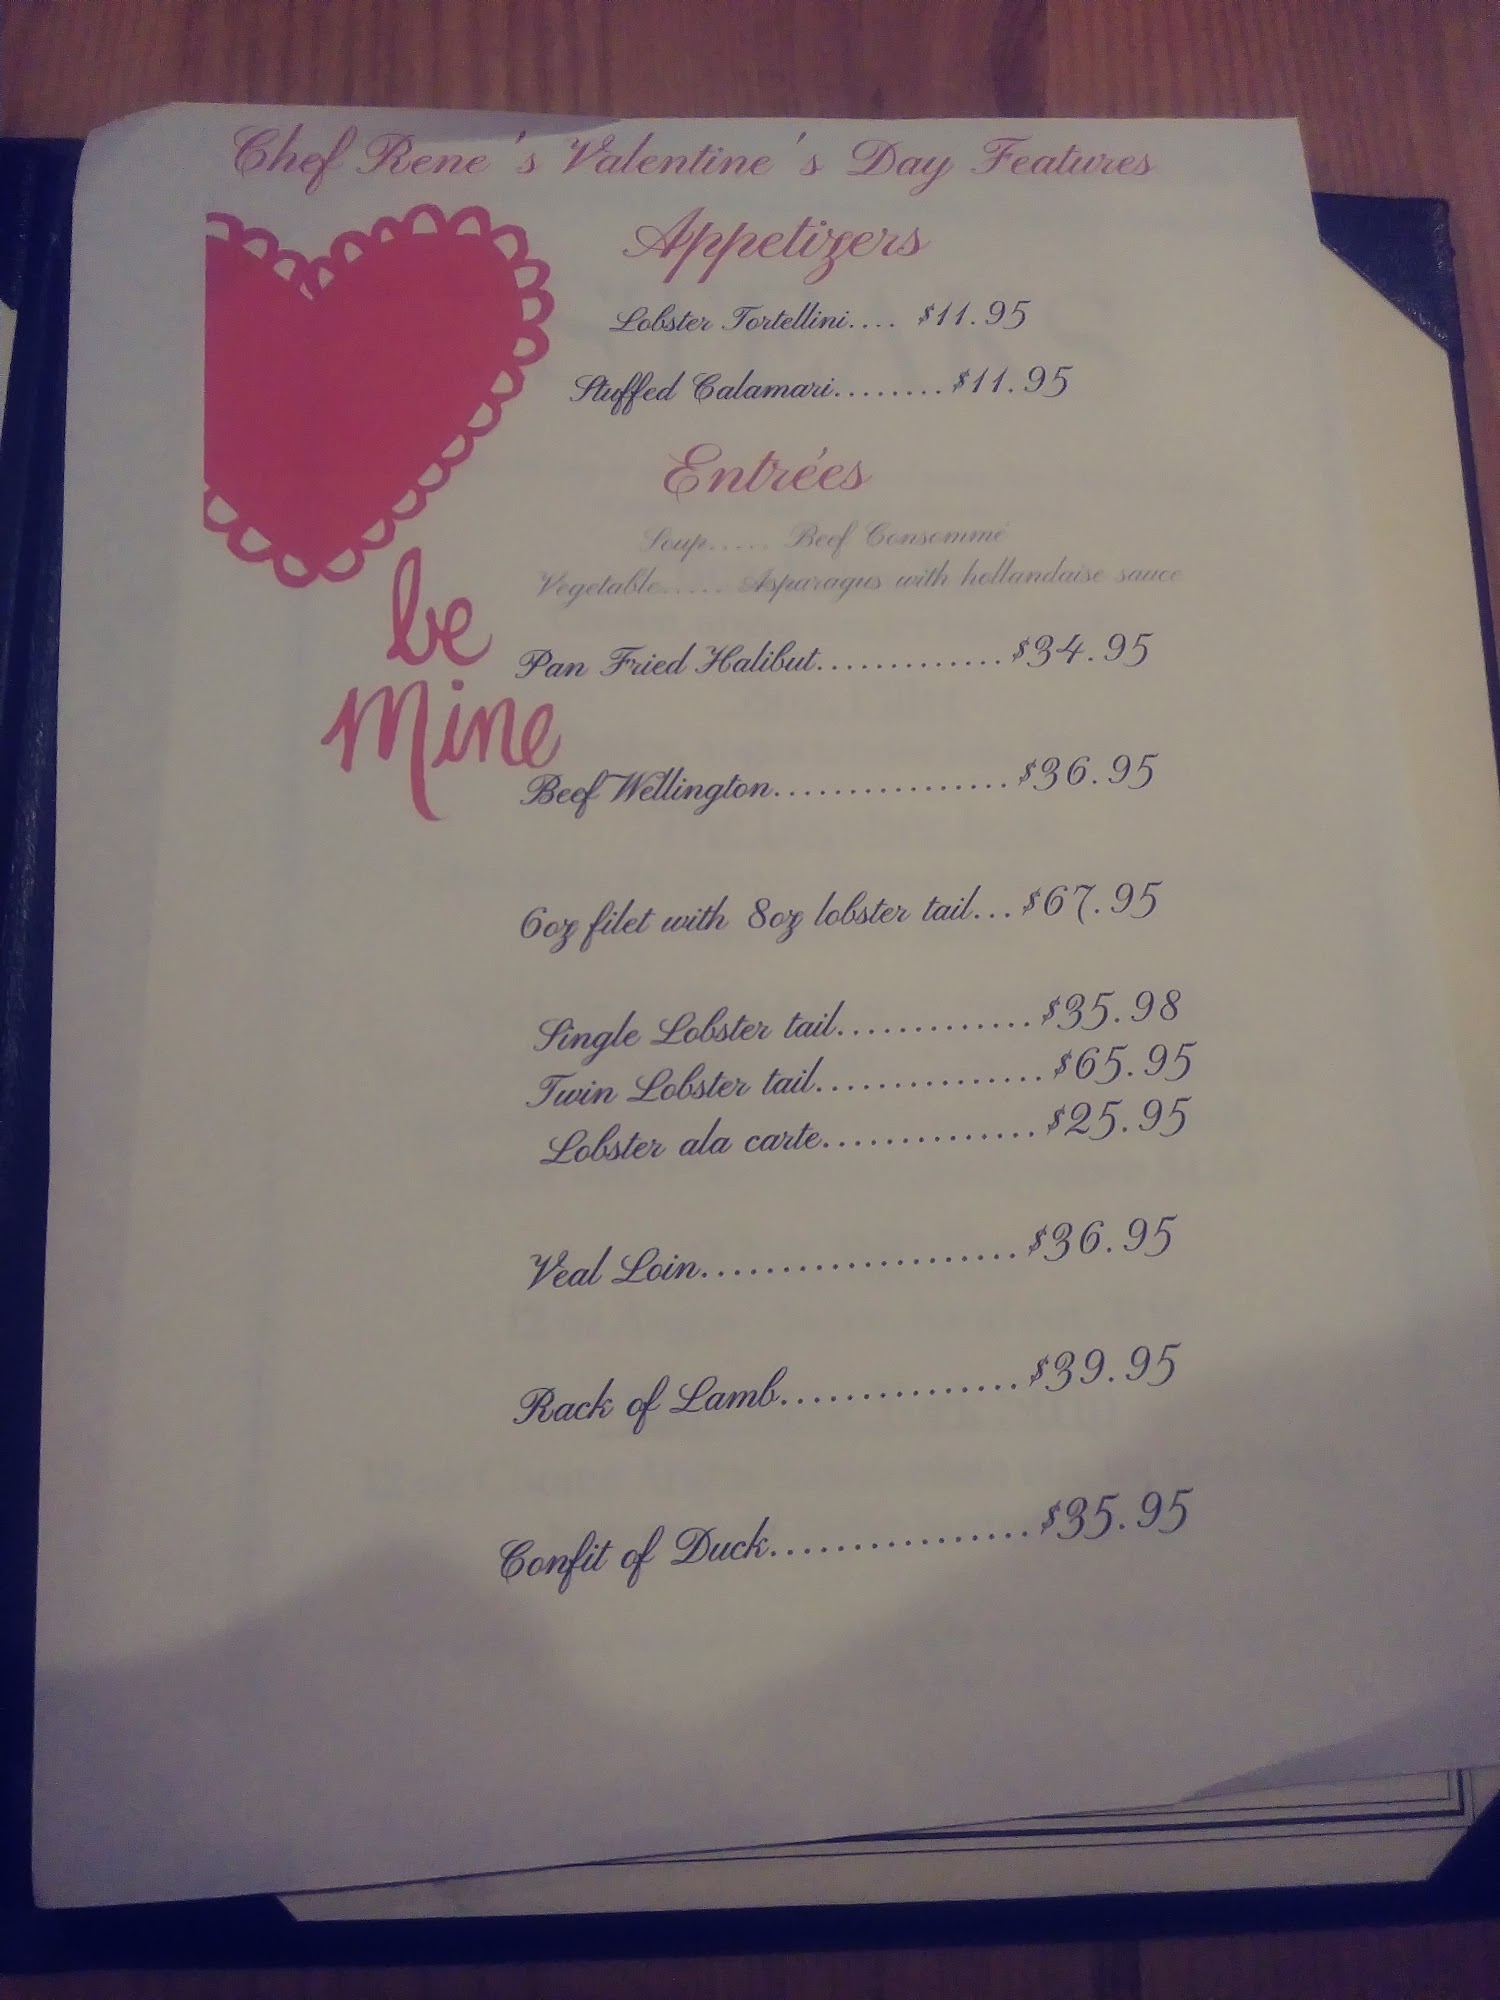 Chef Rene's Valentine's Day Features
Appetizers
Lobster Tortellini.... $11.95
Stuffed Calamari........$11.95
Entrées
Soup..... Beef Consommé
Vegetable..... Asparagus with hollandaise sauce
be
mine
Pan Fried Halibut.............$34.95
Beef Wellington................$36.95
6oz filet with 8oz lobster tail...$67.95
Single Lobster tail.............$35.98
Twin Lobster tail...............$65.95
Lobster ala carte..............$25.95
Veal Loin.....................$36.95
Rack of Lamb...............$39.95
Confit of Duck.................$35.95